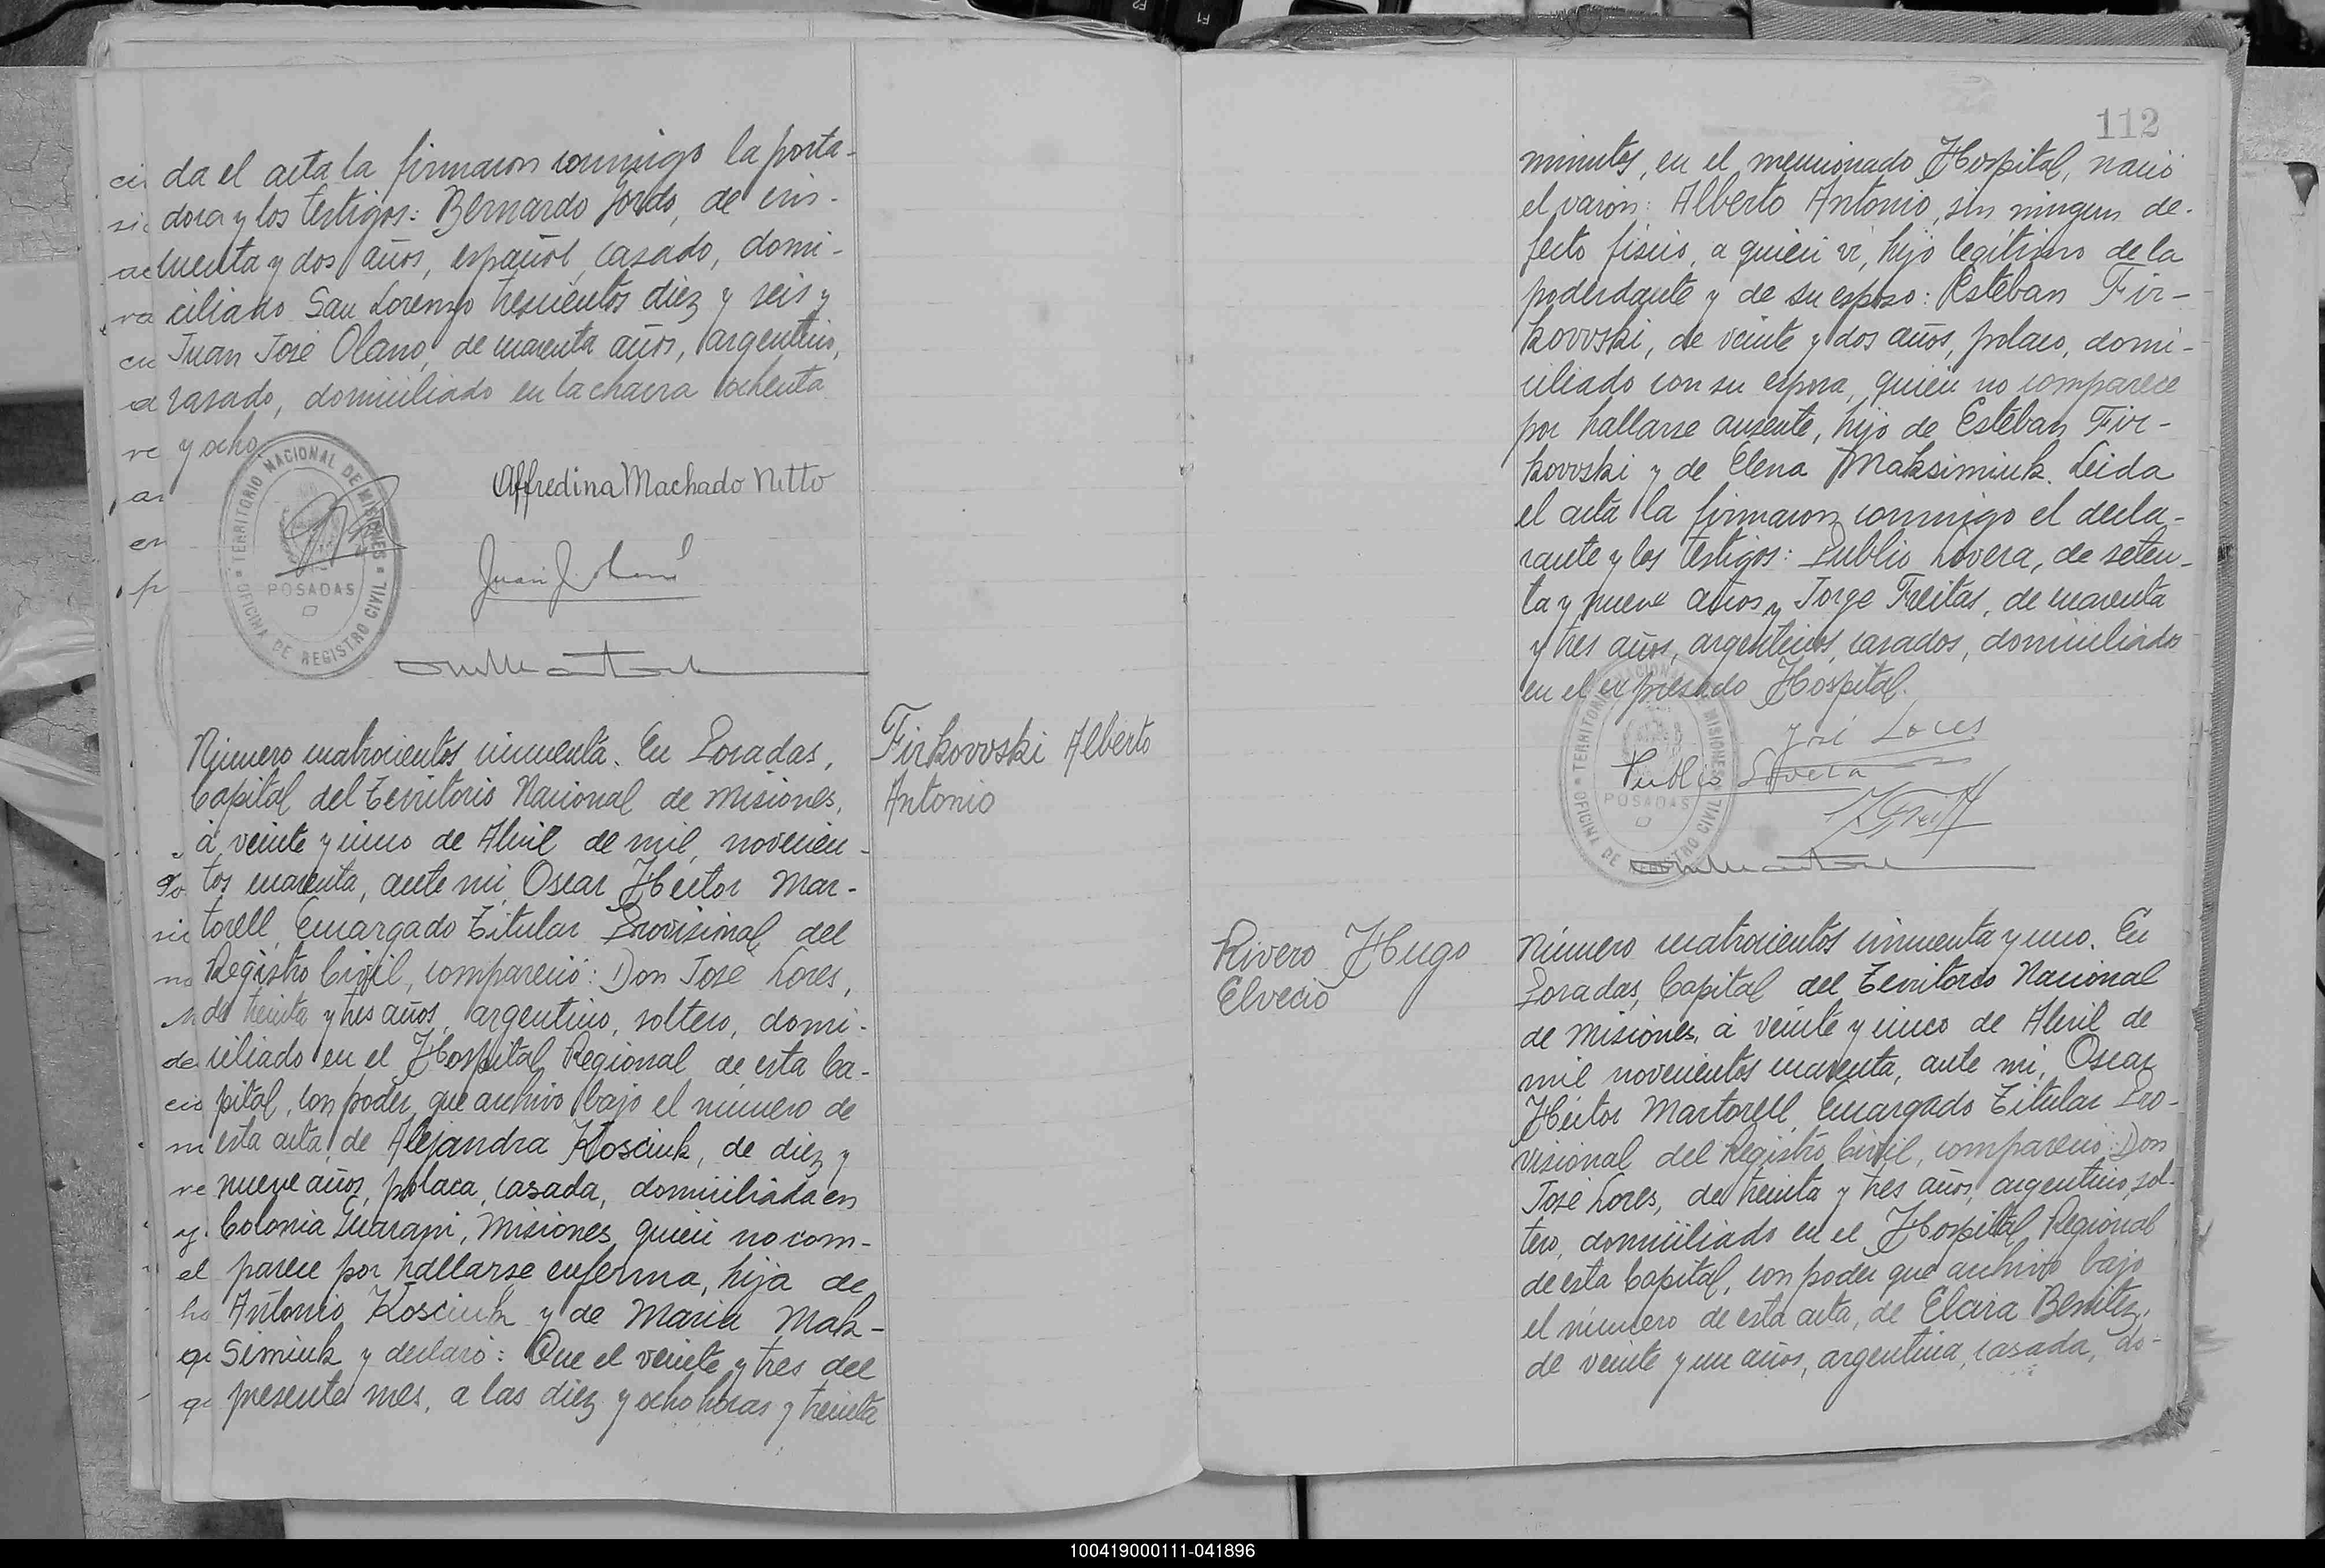 da el acta la firmaron conmigo la porta-
dora y los testigos: Bernardo Jordo, de cin-
cuenta y dos años, español, casado, domi-
ciliado San Lorenzo trescientos diez y seis y
Juan José Olano, de cuarenta años, argentino,
casado, domiciliado en la chacra ochenta
y ocho.
TERRITORIO NACIONAL DE MISIONES
POSADAS
OFICINA DE REGISTRO CIVIL
Affredina Machado Netto
Juan J. Olano
Número cuatrocientos cincuenta. En Posadas,
Capital del Territorio Nacional de Misiones,
á veinte y cinco de Abril de mil novecien-
tos cuarenta, ante mi, Oscar Héctor Mar-
torell, Encargado Titular Provisional del
Registro Civil, compareció: Don José Lores,
de treinta y tres años, argentino, soltero, domi-
ciliado en el Hospital Regional de esta Ca-
pital, con poder que archivo bajo el número de
esta acta, de Alejandra Kosciuk, de diez y
nueve años, polaca, casada, domiciliada en
Colonia Guarapi, Misiones, quien no com-
parece por hallarse enferma, hija de
Antonio Kosciuk y de Maria Mak-
simiuk y declaró: Que el veinte y tres del
presente mes, a las diez y ocho horas y treinta
Firkovvski Alberto
Antonio
112
minutos, en el mencionado Hospital, nació
el varón: Alberto Antonio, sin ningun de-
fecto físico, a quien vi, hijo legítimo de la
poderdante y de su esposo: Estéban Fir-
kovvski, de veinte y dos años, polaco, domi-
ciliado con su esposa, quien no comparece
por hallarse ausente, hijo de Estéban Fir-
kovvski y de Elena Maksimiuk. Leida
el acta la firmaron conmigo el decla-
rante y los testigos: Publio Lovera, de seten-
ta y nueve años y Jorge Freitas, de cuarenta
y tres años, argentinos, casados, domiciliados
en el expresado Hospital.
José Lores
Publio Lovera
TERRITORIO NACIONAL DE MISIONES
POSADAS
OFICINA DE REGISTRO CIVIL
Rivero Hugo
Elvecio
Número cuatrocientos cincuenta y uno. En
Posadas, Capital del Territorio Nacional
de Misiones, á veinte y cinco de Abril de
mil novecientos cuarenta, ante mi, Oscar
Héctor Martorell, Encargado Titular Pro-
visional del Registro Civil, compareció: Don
José Lores, de treinta y tres años, argentino, sol-
tero, domiciliado en el Hospital Regional
de esta Capital, con poder que archivo bajo
el número de esta acta, de Elcira Benitez,
de veinte y un años, argentina, casada, do-
100419000111-041896